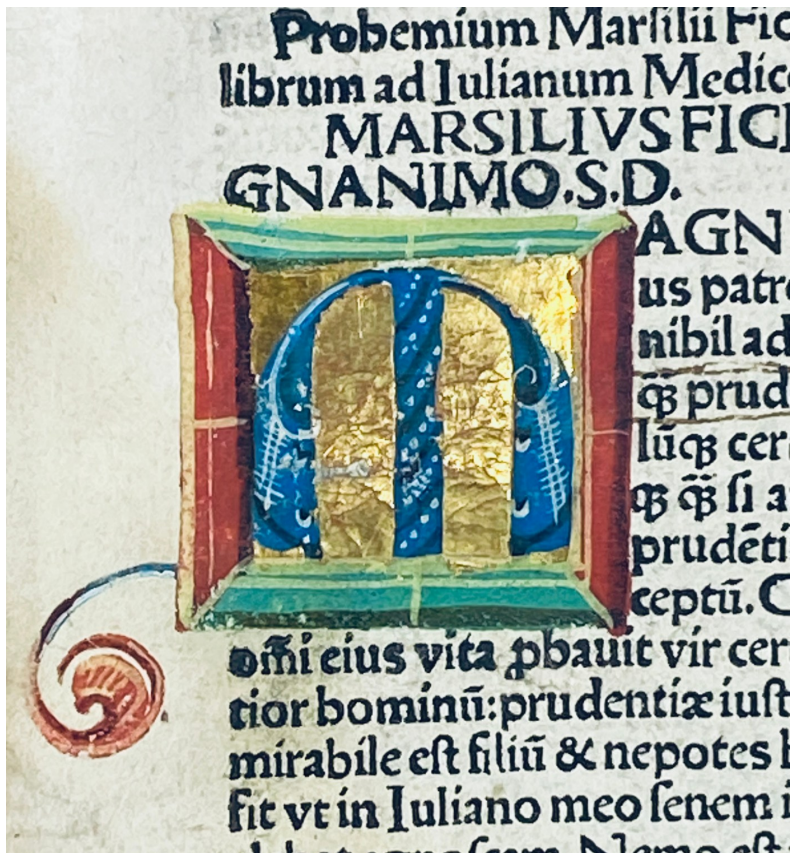 Prohemium Marsilii Fic
librum ad Iulianum Medic
MARSILIVS FICI
GNANIMO.S.D.
M AGN
us patr
nihil ad
qꝫ prud
lūqꝫ cer
qꝫ qꝫ̄ ſi a
prudēti
ceptū. C
om̄i eius vita ꝓbauit vir cer
tior hominū: prudentiæ iuſt
mirabile eſt filiū & nepotes
fit vt in Iuliano meo ſenem